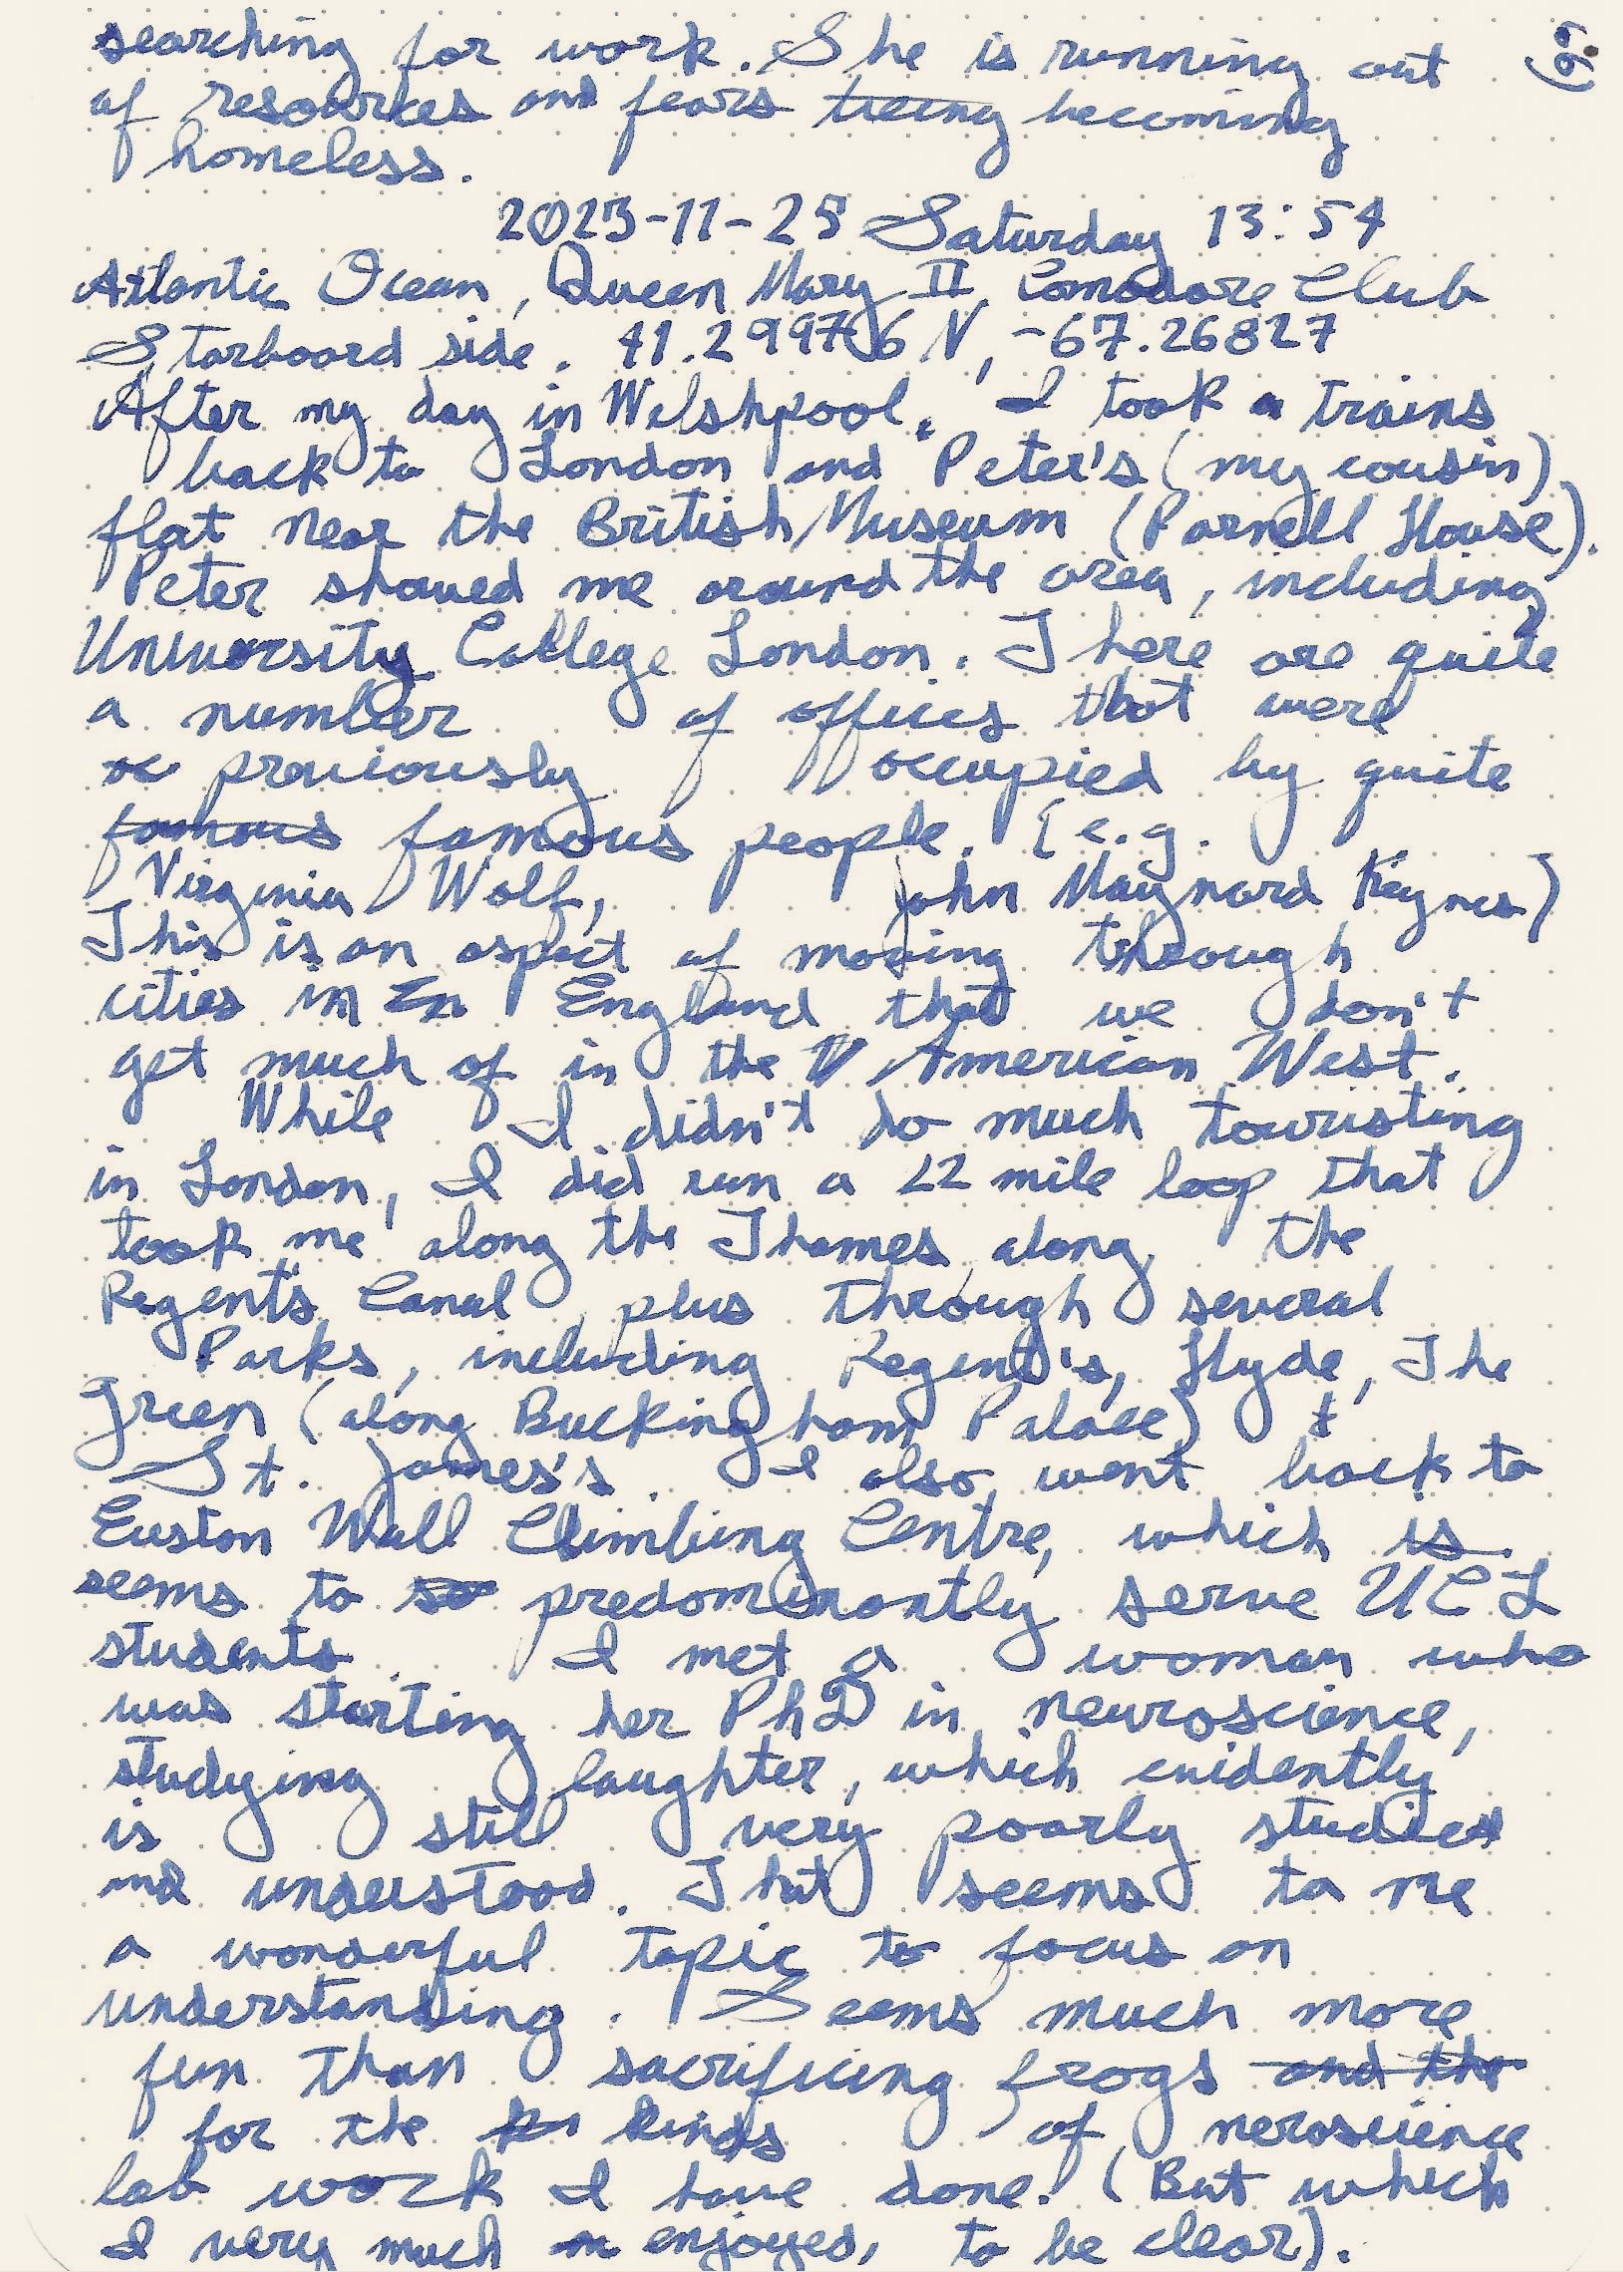 searching for work. She is running out
of resources and fears becoming
homeless.
2023-11-25 Saturday 13:54
Atlantic Ocean, Queen Mary II, Comodore Club
Starboard side. 41.299776 N, -67.26827
After my day in Welshpool, I took a trains
back to London and Peter's (my cousin)
flat near the British Museum (Parnell House).
Peter showed me around the area, including
University College London. There are quite
a number of offices that were
oc previously occupied by quite
famous famous people. (e.g.
Virginia Wolf, John Maynard Keynes)
This is an aspect of moving through
cities in En England that we don't
get much of in the W American West.
While I didn't do much touristing
in London, I did run a 22 mile loop that
took me along the Thames, along the
Regent's Canal, plus through several
Parks, including Regent's, Hyde, The
Green (along Buckingham Palace) &
St. James's. I also went back to
Euston Wall Climbing Centre, which is
seems to so predominantly serve UCL
students. I met a woman who
was starting her PhD in neuroscience,
studying laughter, which evidently
is still very poorly studied
and understood. That seems to me
a wonderful topic to focus on
understanding. Seems much more
fun than sacrificing frogs and the
for the kinds of neroscience
lab work I have done. (But which
I very much enjoyed, to be clear).